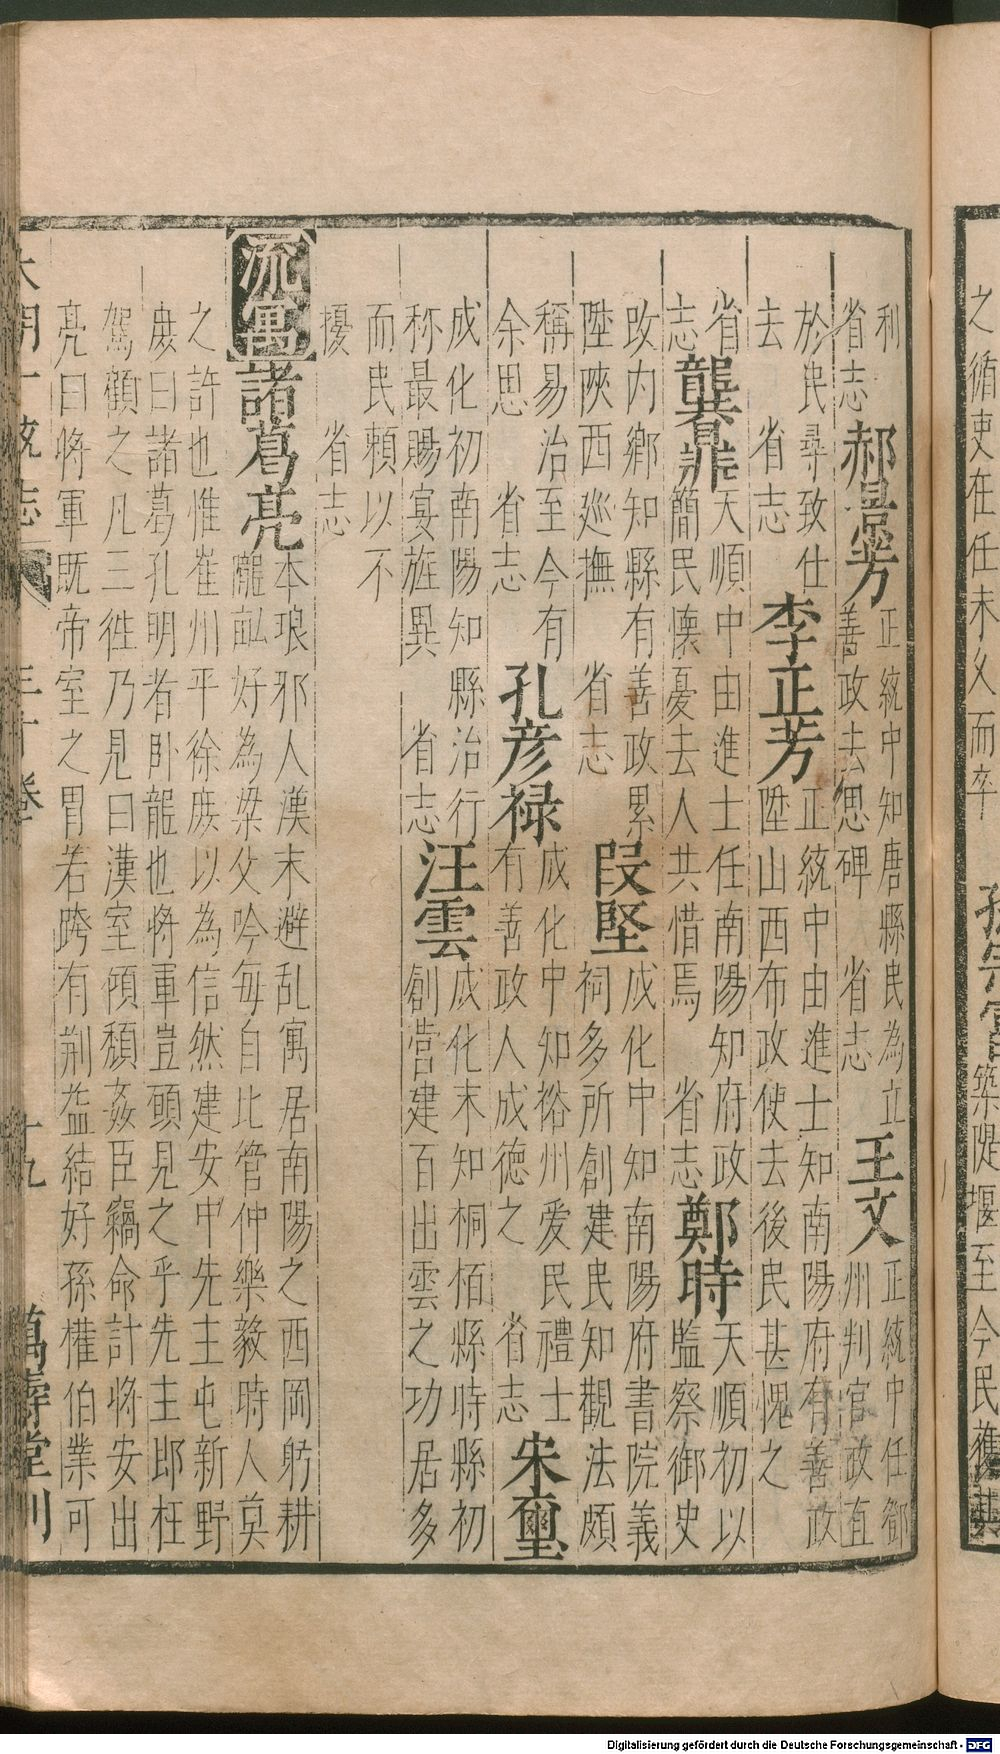 之循吏在任未久而卒
孫宗
築堤堰至今民獲其
利
省志
郝景芳
正統中知唐縣民為立
善政去思碑 省志
王文
正統中任鄧
州判官政直
於民尋致仕
去 省志
李正芳
正統中由進士知南陽府有善政
陞山西布政使去後民甚愧之
省
志
龔鼎
天順中由進士任南陽知府政
簡民懷憂去人共惜焉 省志
鄭時
天順初以
監察御史
改内鄉知縣有善政累
陞陝西巡撫 省志
段堅
成化中知南陽府書院義
祠多所創建民知觀法頗
稱易治至今有
余思 省志
孔彦禄
成化中知裕州爱民禮士
有善政人成德之 省志
宋璽
成化初南陽知縣治行
称最賜宴旌異 省志
汪雲
成化末知桐栢縣時縣初
創营建百出雲之功居多
而民賴以不
擾 省志
流寓
諸葛亮
本琅邪人漢末避乱寓居南陽之西岡躬耕
隴畝好為梁父吟每自比管仲樂毅時人莫
之許也惟崔州平徐庶以為信然建安中先主屯新野
庶曰諸葛孔明者卧龍也將軍豈頭見之乎先主郎枉
駕顧之凡三徃乃見曰漢室傾頹姦臣竊命計將安出
亮曰將軍既帝室之胄若跨有荆益結好孫權伯業可
大明一統志
三十卷
十九
萬壽堂刊
Digitalisierung gefördert durch die Deutsche Forschungsgemeinschaft - DFG